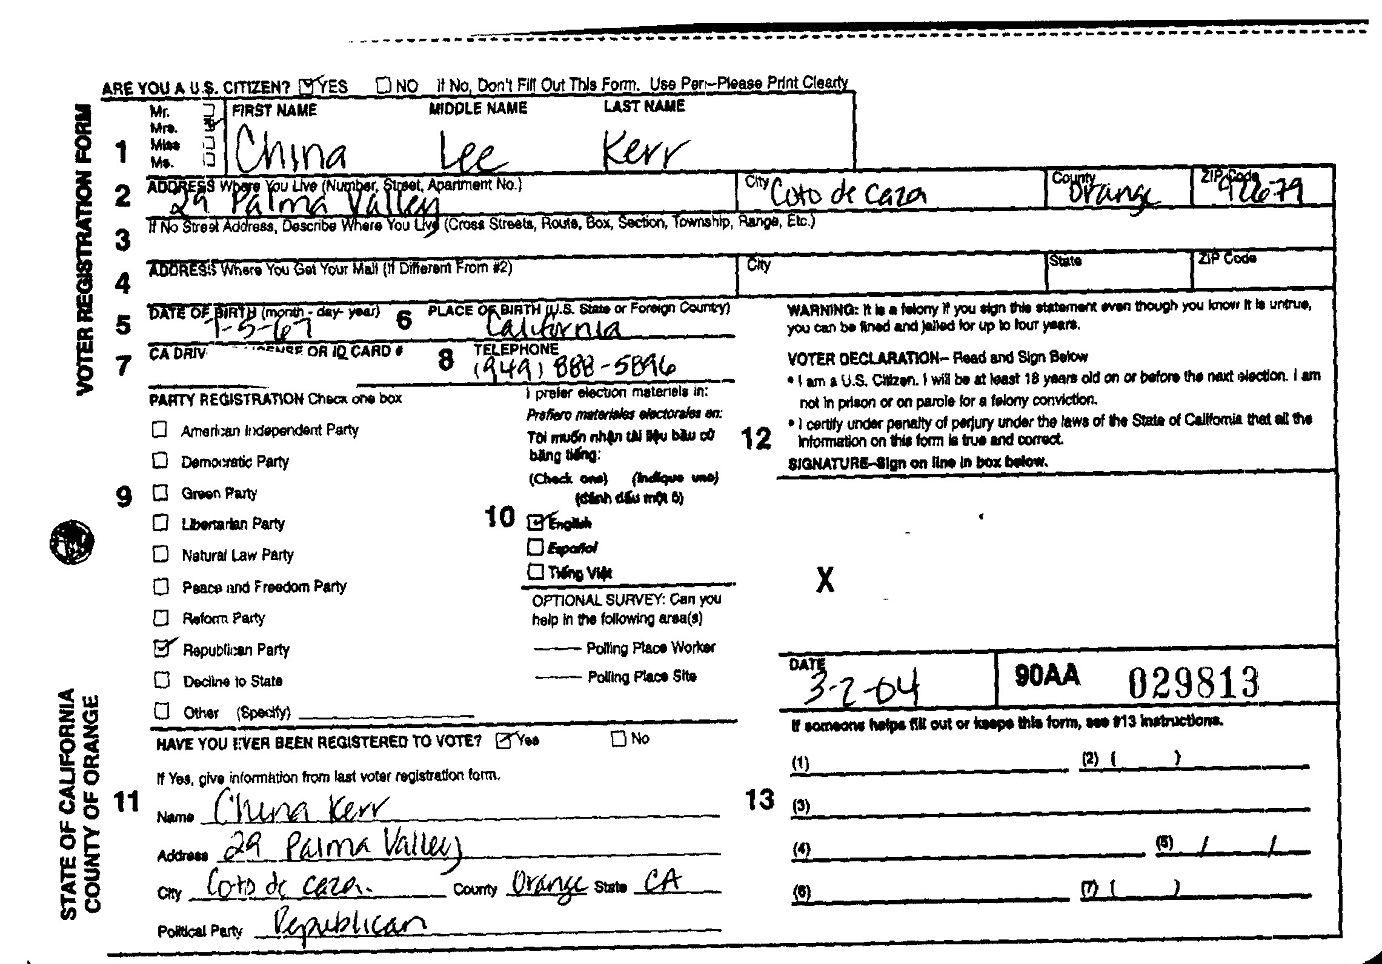 ARE YOU A U.S. CITIZEN? YES NO If No, Don't Fill Out This Form. Use Pen–Please Print Clearly
VOTER REGISTRATION FORM
1
Mr.
Mrs.
Miss
Ms.
FIRST NAME MIDDLE NAME LAST NAME
China Lee Kerr
2 ADDRESS Where You Live (Number, Street, Apartment No.) City County ZIP Code
29 Palma Valley Coto de Caza Orange 92679
3 If No Street Address, Describe Where You Live (Cross Streets, Route, Box, Section, Township, Range, Etc.)
4 ADDRESS Where You Get Your Mail (If Different From #2) City State ZIP Code
5 DATE OF BIRTH (month - day - year)
-5-67
6 PLACE OF BIRTH (U.S. State or Foreign County)
California
7 CA DRIV ENSE OR ID CARD #
8 TELEPHONE
(949) 888-5896
9 PARTY REGISTRATION Check one box
American Independent Party
Democratic Party
Green Party
Libertarian Party
Natural Law Party
Peace and Freedom Party
Reform Party
Republican Party
Decline to State
Other (Specify)
10 I prefer election materiels in:
Prefiero materiales electorales en:
Tôi muốn nhận tài liệu bầu cử
bằng tiếng:
(Check one) (Indique uno)
(đánh dấu một ô)
English
Español
Tiếng Việt
OPTIONAL SURVEY: Can you
help in the following area(s)
Polling Place Worker
Polling Place Site
WARNING: It is a felony if you sign this statement even though you know it is untrue,
you can be fined and jailed for up to four years.
12 VOTER DECLARATION– Read and Sign Below
• I am a U.S. Citizen. I will be at least 18 years old on or before the next election. I am
not in prison or on parole for a felony conviction.
• I certify under penalty of perjury under the laws of the State of California that all the
information on this form is true and correct.
SIGNATURE–Sign on line in box below.
X
DATE
3-2-04
90AA 029813
If someone helps fill out or keeps this form, see #13 instructions.
STATE OF CALIFORNIA
COUNTY OF ORANGE
11 HAVE YOU EVER BEEN REGISTERED TO VOTE? Yes No
If Yes, give information from last voter registration form.
Name China Kerr
Address 29 Palma Valley
City Coto de Caza. County Orange State CA
Political Party Republican
13
(1) (2) ( )
(3)
(4) (5) / /
(6) (7) ( )